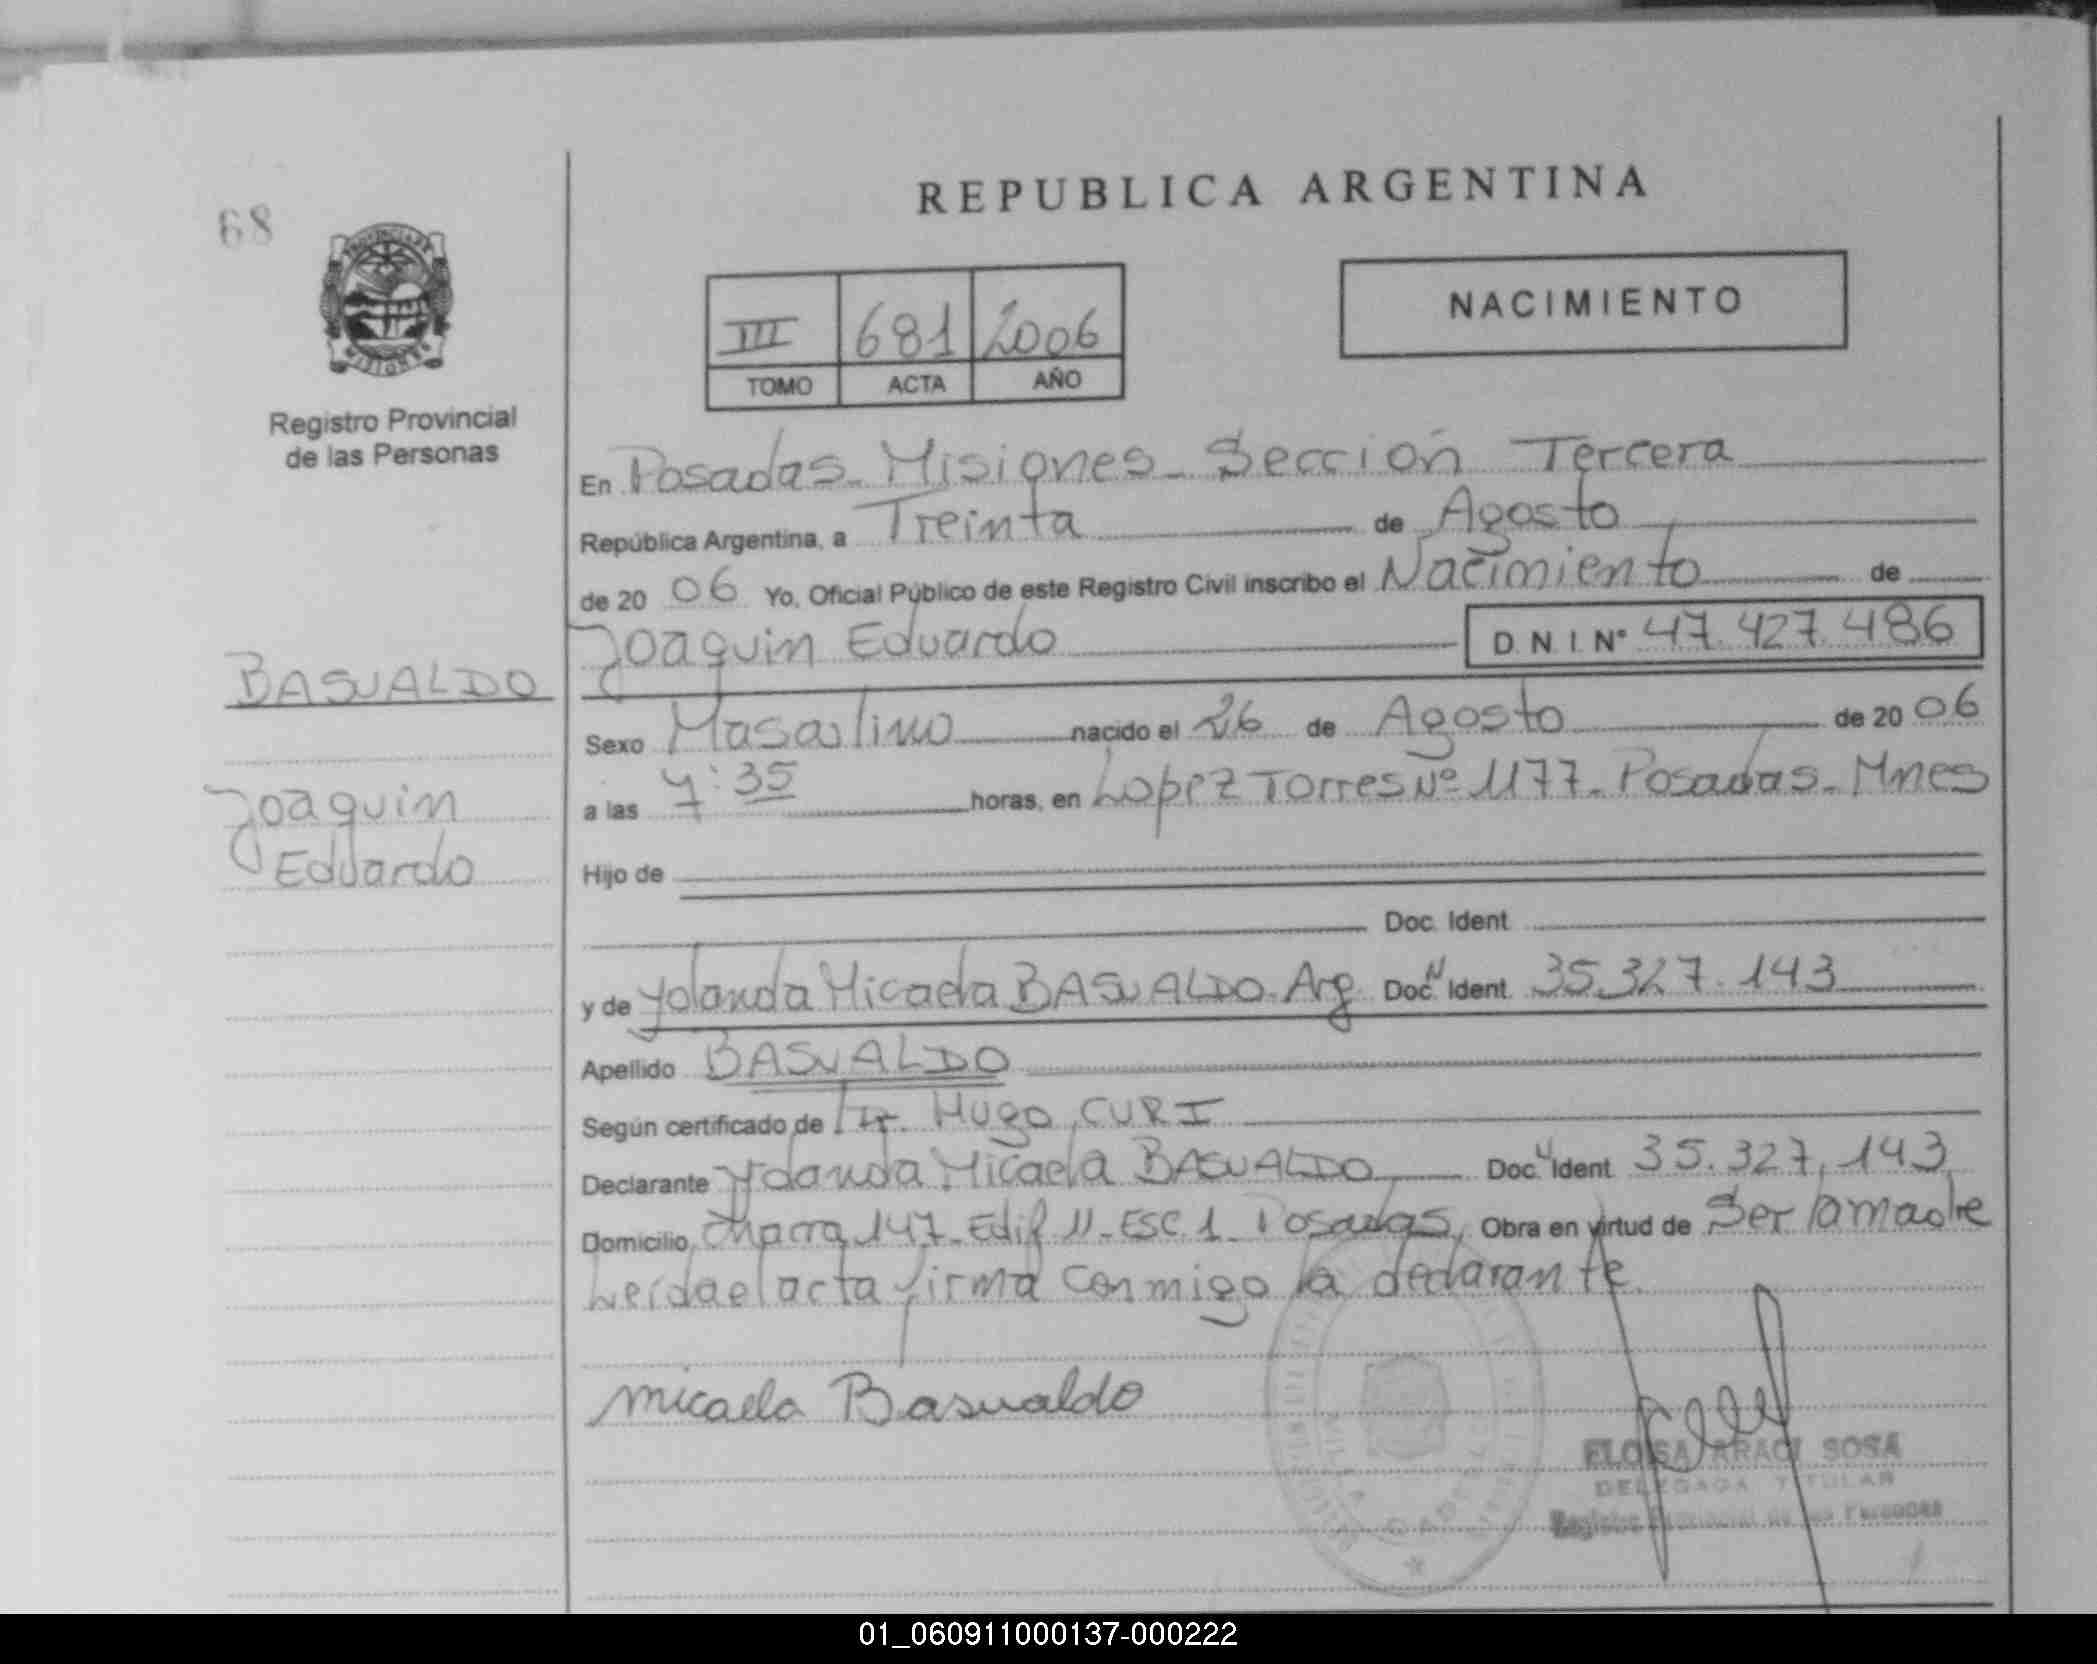 REPUBLICA ARGENTINA
68
PROVINCIA DE
MISIONES
NACIMIENTO
III 681 2006
TOMO ACTA AÑO
Registro Provincial
de las Personas
En Posadas - Misiones - Sección Tercera
República Argentina, a Treinta de Agosto
de 20 06 Yo, Oficial Público de este Registro Civil inscribo el Nacimiento de
Joaquin Eduardo D.N.I. N° 47.427.486
BASUALDO
Sexo Masculino nacido el 26 de Agosto de 20 06
Joaquin
a las 7:35 horas, en Lopez Torres Nº 1177 - Posadas - Mnes
Eduardo
Hijo de
Doc. Ident.
y de Yolanda Micaela BASUALDO - Arg. Doc. N Ident. 35.327.143
Apellido BASUALDO
Según certificado de Dr. Hugo CURI
Declarante Yolanda Micaela BASUALDO Doc. N Ident. 35.327.143
Domicilio Charra 147 - Edif 11 - ESC. 1 - Posadas, Obra en virtud de Ser la madre
Leída el acta firma conmigo la declarante
Micaela Basualdo
ELOISA ARACI SOSA
DELEGADA TITULAR
Registro Provincial de las Personas
01_060911000137-000222